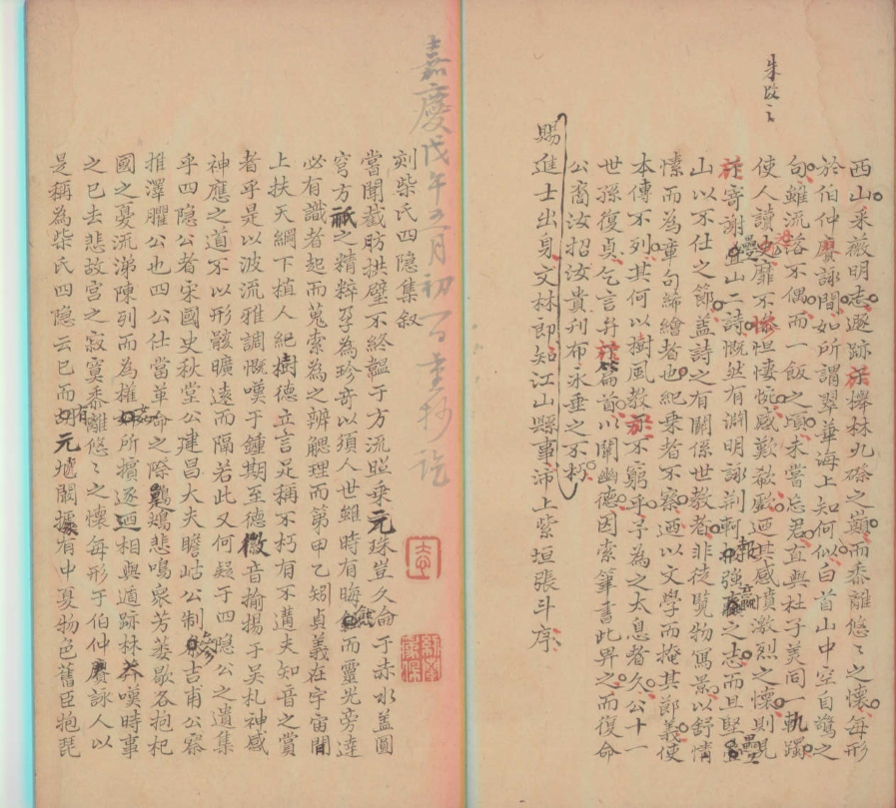 朱改之
西山采薇明志遯跡于櫸林九磜之巔而黍離悠〻之懷每形
於伯仲賡詠間如所謂翠華海上知何似白首山中空自驚之
句雖流落不偶而一飯之頃未嘗忘君直與杜子美同一軌躅
使人讀之靡不慘怛悽惋感歎欷歔迺其感憤激烈之懷則見
於寄謝疊山二詩慨然有淵明詠荆軻報強嬴之志而且堅疊
山以不仕之節蓋詩之有關係世教者非徒覽物寫景以舒情
愫而為章句絺繪者也紀乗者不察迺以文學而掩其節義使
本傳不列其何以樹風教于不窮乎予為之太息者久公十一
世孫復貞乞言弁諸篇首以闡幽德因索筆書此畀之而復命
公裔汝招汝貴刋布永垂之不朽
賜進士出身文林郎知江山縣事沛上紫垣張斗序
嘉慶戊午五月初一日重抄訖
刻柴氏四隐集叙
當聞截肪拱璧不終韞于方流照乗元珠豈久侖于赤水蓋圓
穹方祇之精粹孚為珍奇以須人世雖時有晦而靈光旁達
必有識者起而蒐索為之辨䚡理而第甲乙矧貞義在宇宙間
上扶天綱下植人紀樹德立言足稱不朽有不遘夫知音之賞
者乎是以波流雅調慨嘆于鍾期至德微音揄揚于吴札神感
神應之道不以形骸曠遠而隔若此又何疑于四隐公之遺集
乎四隐公者宋國史秋堂公建昌大夫瞻岵公制參吉甫公察
推澤臞公也四公仕當革命之際鷄鵶悲鳴衆芳萎歇各抱杞
國之憂流涕陳列而為權奸所擯逐迺相與遁跡林莽嘆時事
之已去悲故宫之寂寞黍離悠〻之懷每形于伯仲賡詠人以
是稱為柴氏四隐云已而胡元虓闞據有中夏物色舊臣袍琵